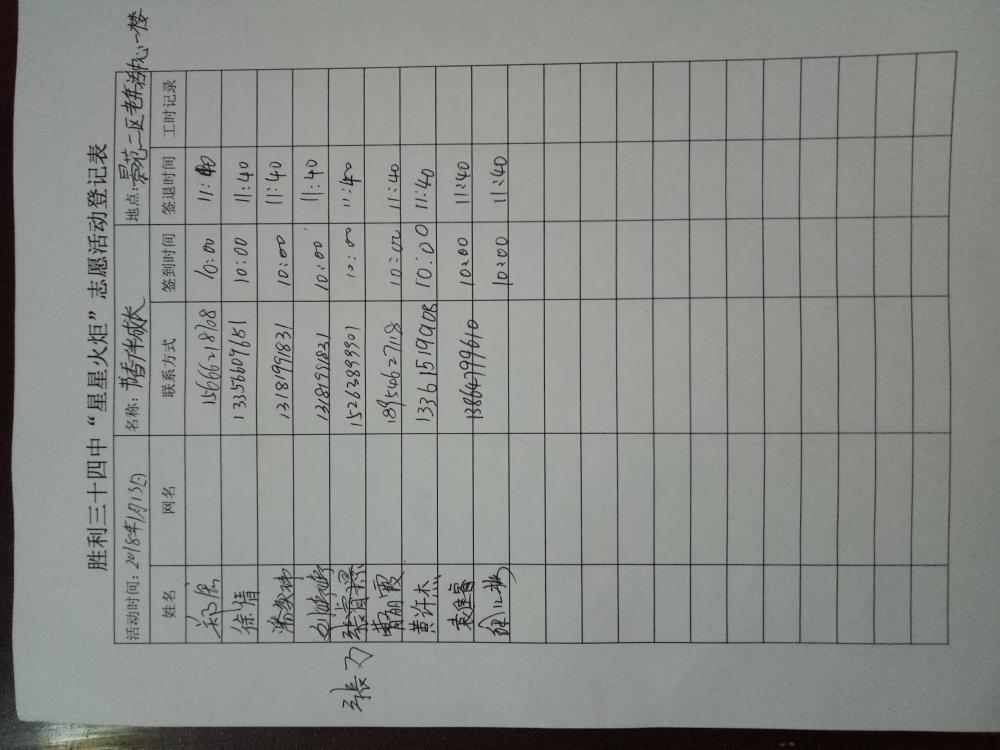 胜利三十四中“星星火炬”志愿活动登记表
活动时间:2018年1月13日 名称:书香伴成长 地点:景苑二区老年活动中心一楼
姓名 网名 联系方式 签到时间 签退时间 工时记录
15666218708 10:00 11:40
徐倩 13356609681 10:00 11:40
13181991831 10:00 11:40
13181991831 10:00 11:40
張力 15263899901 10:00 11:40
曹丽霞 18954627118 10:00 11:40
黄许杰 13361519908 10:00 11:40
13864799610 10:00 11:40
10:00 11:40